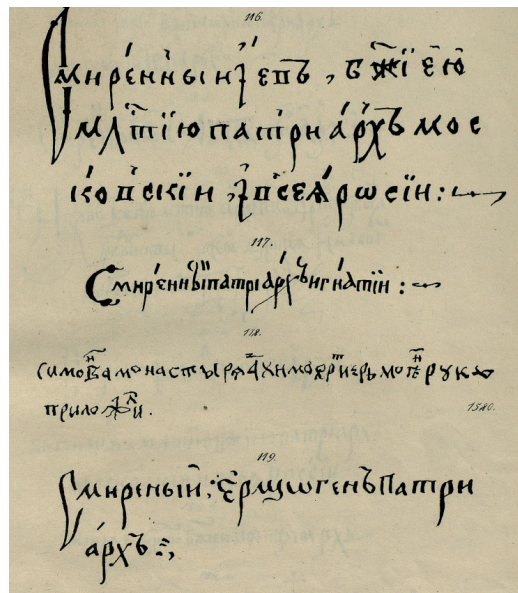 116.
Смире́нныи і епⷭ҇пъ, бж҃їею
мл҃тїю патрїа́рхъ мос
ко́вскїи, і всеѧ́ рѡсїи:
117.
Смире́нныі патріа́рхъ игна́тїи:
118.
Симонова монастырѧ архимаⷩ҇дрит иерьмоге́н руку
приложи.
1580.
119.
Смиреныи, Єрмѡгенъ Патри
а́рхъ: